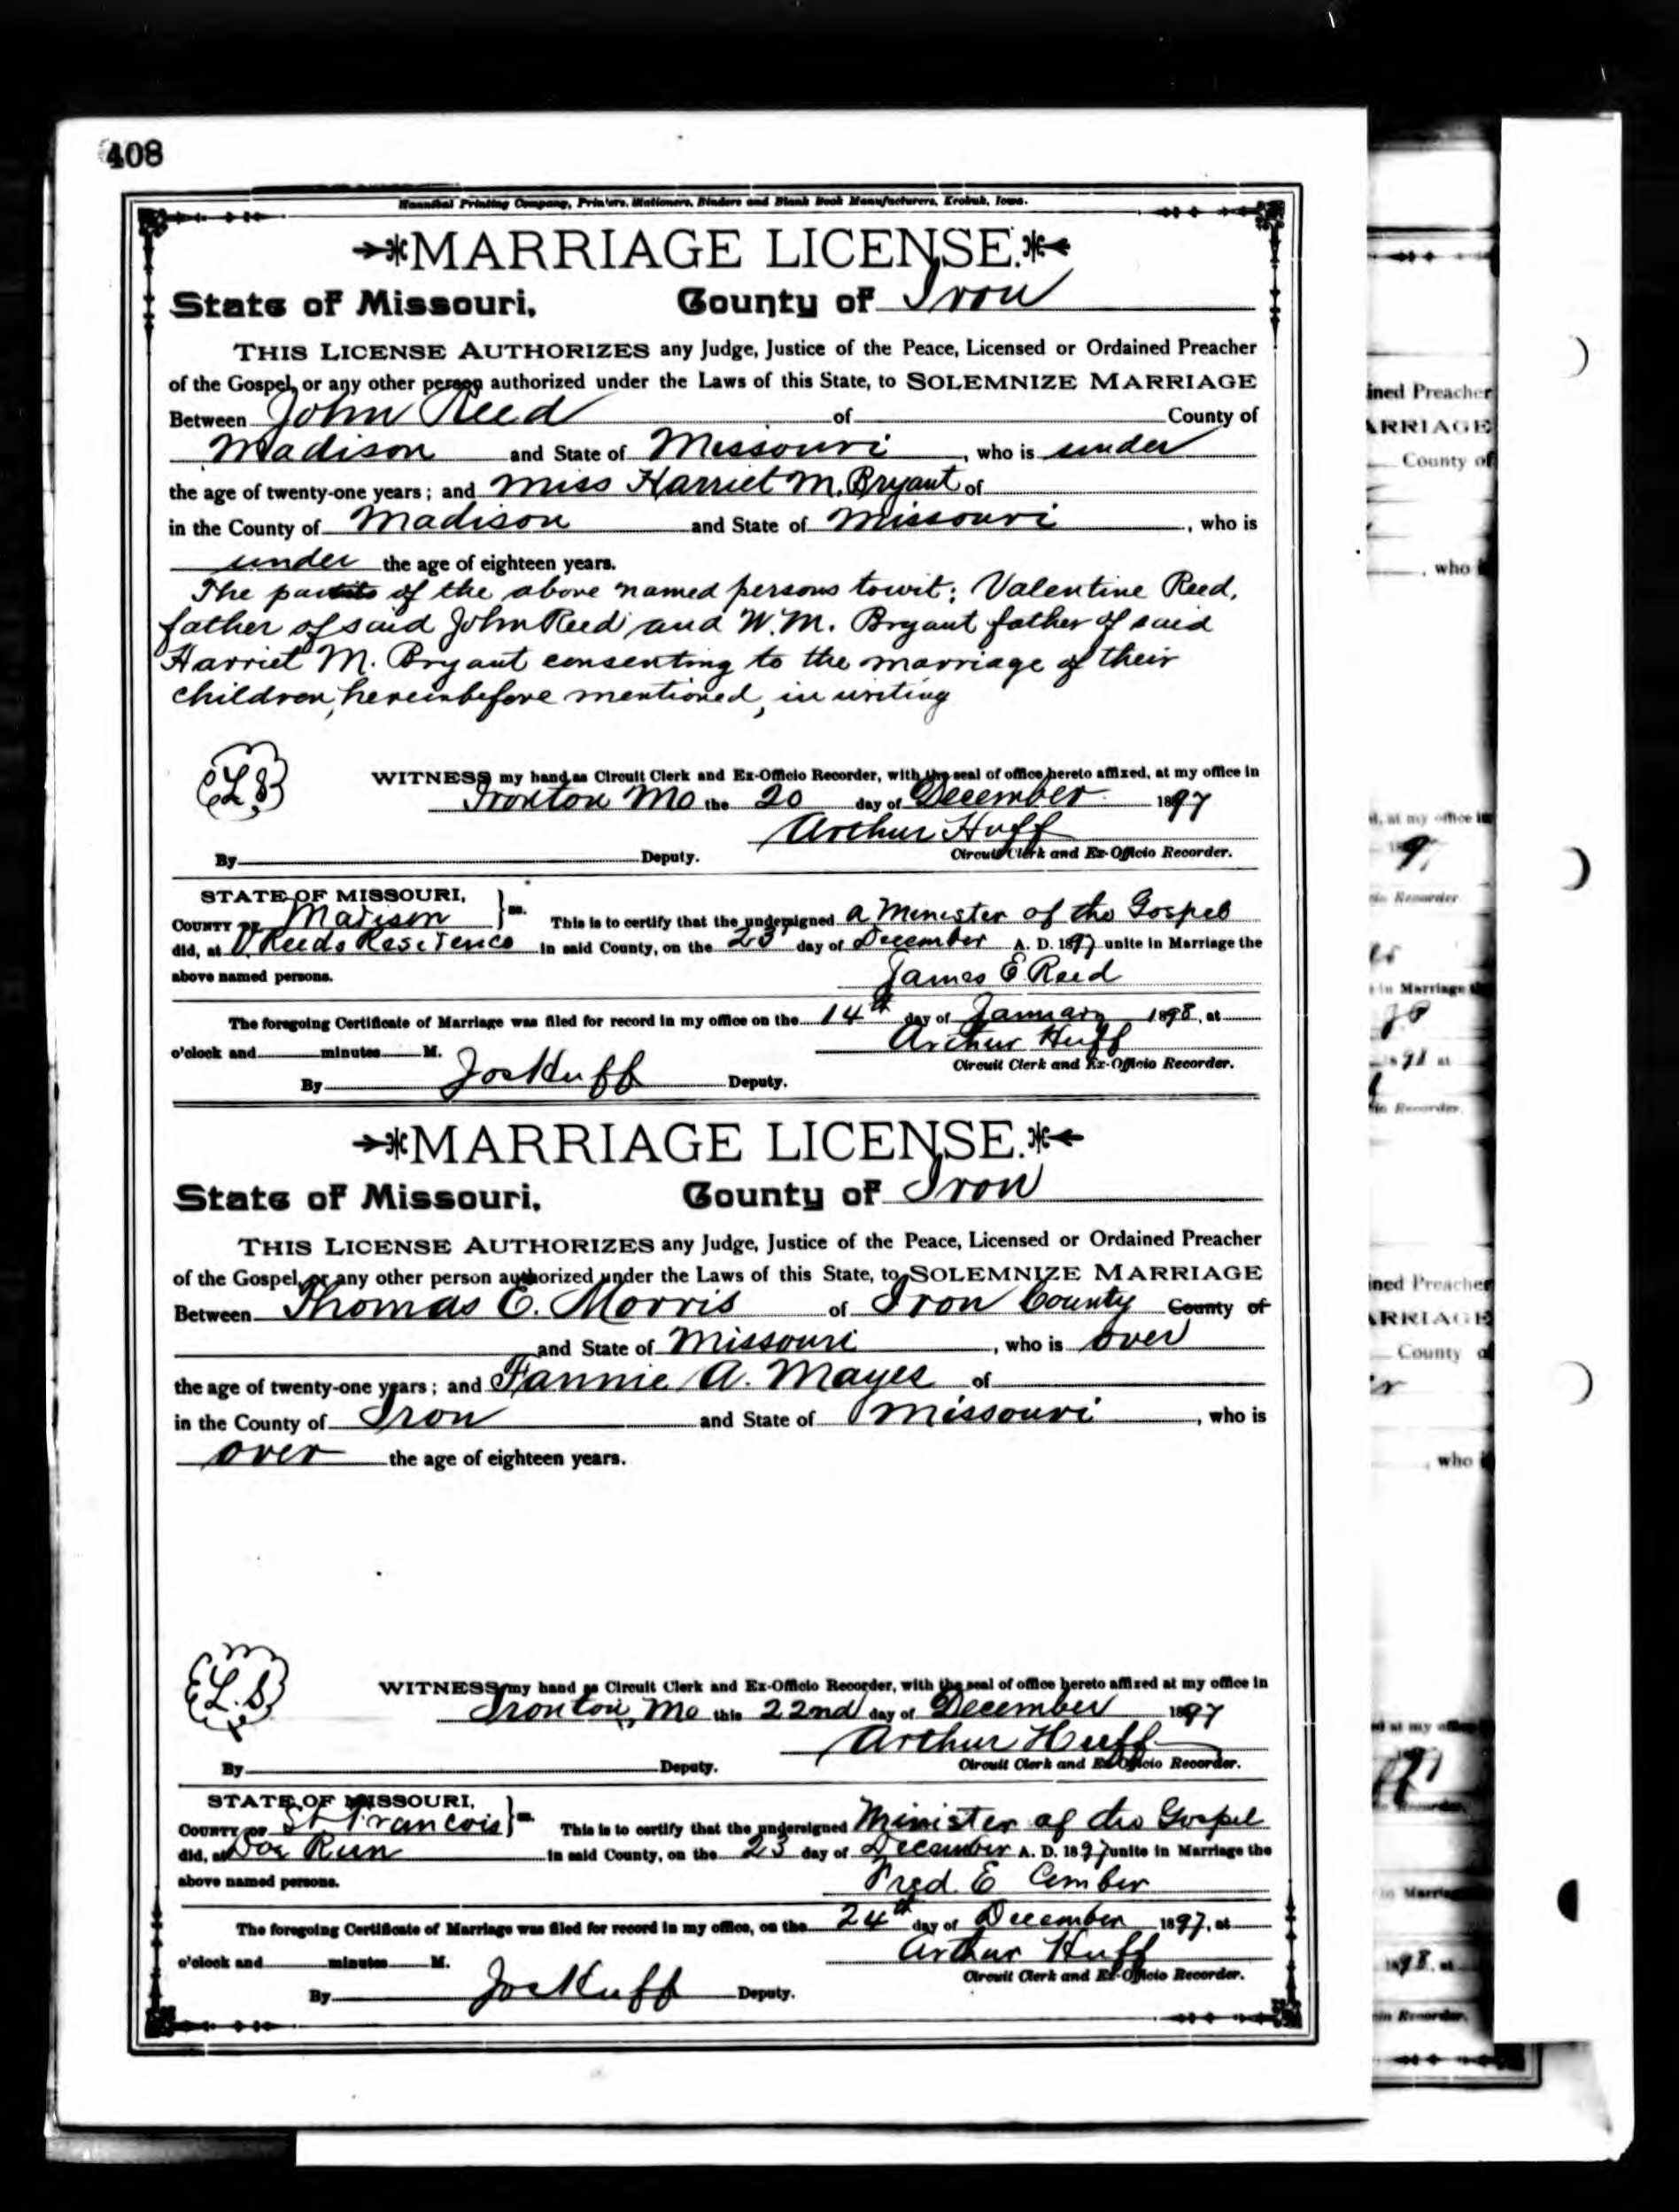 408
Hannibal Printing Company, Printers, Stationers, Binders and Blank Book Manufacturers, Keokuk, Iowa.
MARRIAGE LICENSE.
State of Missouri, County of Iron
THIS LICENSE AUTHORIZES any Judge, Justice of the Peace, Licensed or Ordained Preacher
of the Gospel, or any other person authorized under the Laws of this State, to SOLEMNIZE MARRIAGE
Between John Reed of County of
Madison and State of Missouri, who is under
the age of twenty-one years; and Miss Harriet M. Bryant of
in the County of Madison and State of Missouri, who is
under the age of eighteen years.
The parents of the above named persons towit: Valentine Reed,
father of said John Reed and W. M. Bryant father of said
Harriet M. Bryant consenting to the marriage of their
children, hereinbefore mentioned, in writing
L S
WITNESS my hand as Circuit Clerk and Ex-Officio Recorder, with the seal of office hereto affixed, at my office in
Ironton Mo the 20 day of December 1897
Arthur Huff
By Deputy. Circuit Clerk and Ex-Officio Recorder.
STATE OF MISSOURI,
COUNTY OF Madison } ss. This is to certify that the undersigned a Minister of the Gospel
did, at V. Reeds Residence in said County, on the 23 day of December A. D. 1897 unite in Marriage the
above named persons. James E Reed
The foregoing Certificate of Marriage was filed for record in my office on the 14th day of January 1898, at
o'clock and minutes M. Arthur Huff
Circuit Clerk and Ex-Officio Recorder.
By Jos Huff Deputy.
MARRIAGE LICENSE.
State of Missouri, County of Iron
THIS LICENSE AUTHORIZES any Judge, Justice of the Peace, Licensed or Ordained Preacher
of the Gospel, or any other person authorized under the Laws of this State, to SOLEMNIZE MARRIAGE
Between Thomas E. Morris of Iron County County of
and State of Missouri, who is over
the age of twenty-one years; and Fannie A. Mayes of
in the County of Iron and State of Missouri, who is
over the age of eighteen years.
L. S
WITNESS my hand as Circuit Clerk and Ex-Officio Recorder, with the seal of office hereto affixed at my office in
Ironton, Mo this 22nd day of December 1897
Arthur Huff
By Deputy. Circuit Clerk and Ex-Officio Recorder.
STATE OF MISSOURI,
COUNTY OF St Francois } ss. This is to certify that the undersigned Minister of the Gospel
did, at Doe Run in said County, on the 23 day of December A. D. 1897 unite in Marriage the
above named persons. Fred E
The foregoing Certificate of Marriage was filed for record in my office, on the 24th day of December 1897, at
o'clock and minutes M. Arthur Huff
Circuit Clerk and Ex-Officio Recorder.
By Jos Huff Deputy.
ined Preacher
ARRIAGE
County of
, who
d, at my office in
Recorder
in Marriage
at
Recorder.
ined Preacher
ARRIAGE
County
, who
at my
Recorder.